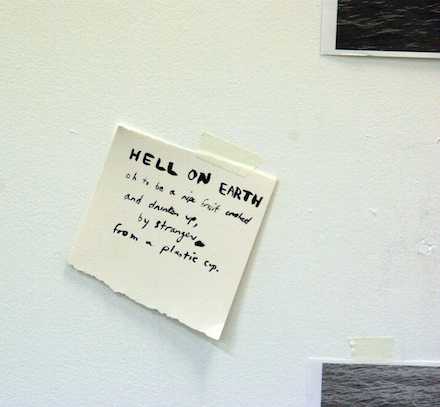 HELL ON EARTH
oh to be a ripe fruit crushed
and drunken up,
by strangers
from a plastic cup.